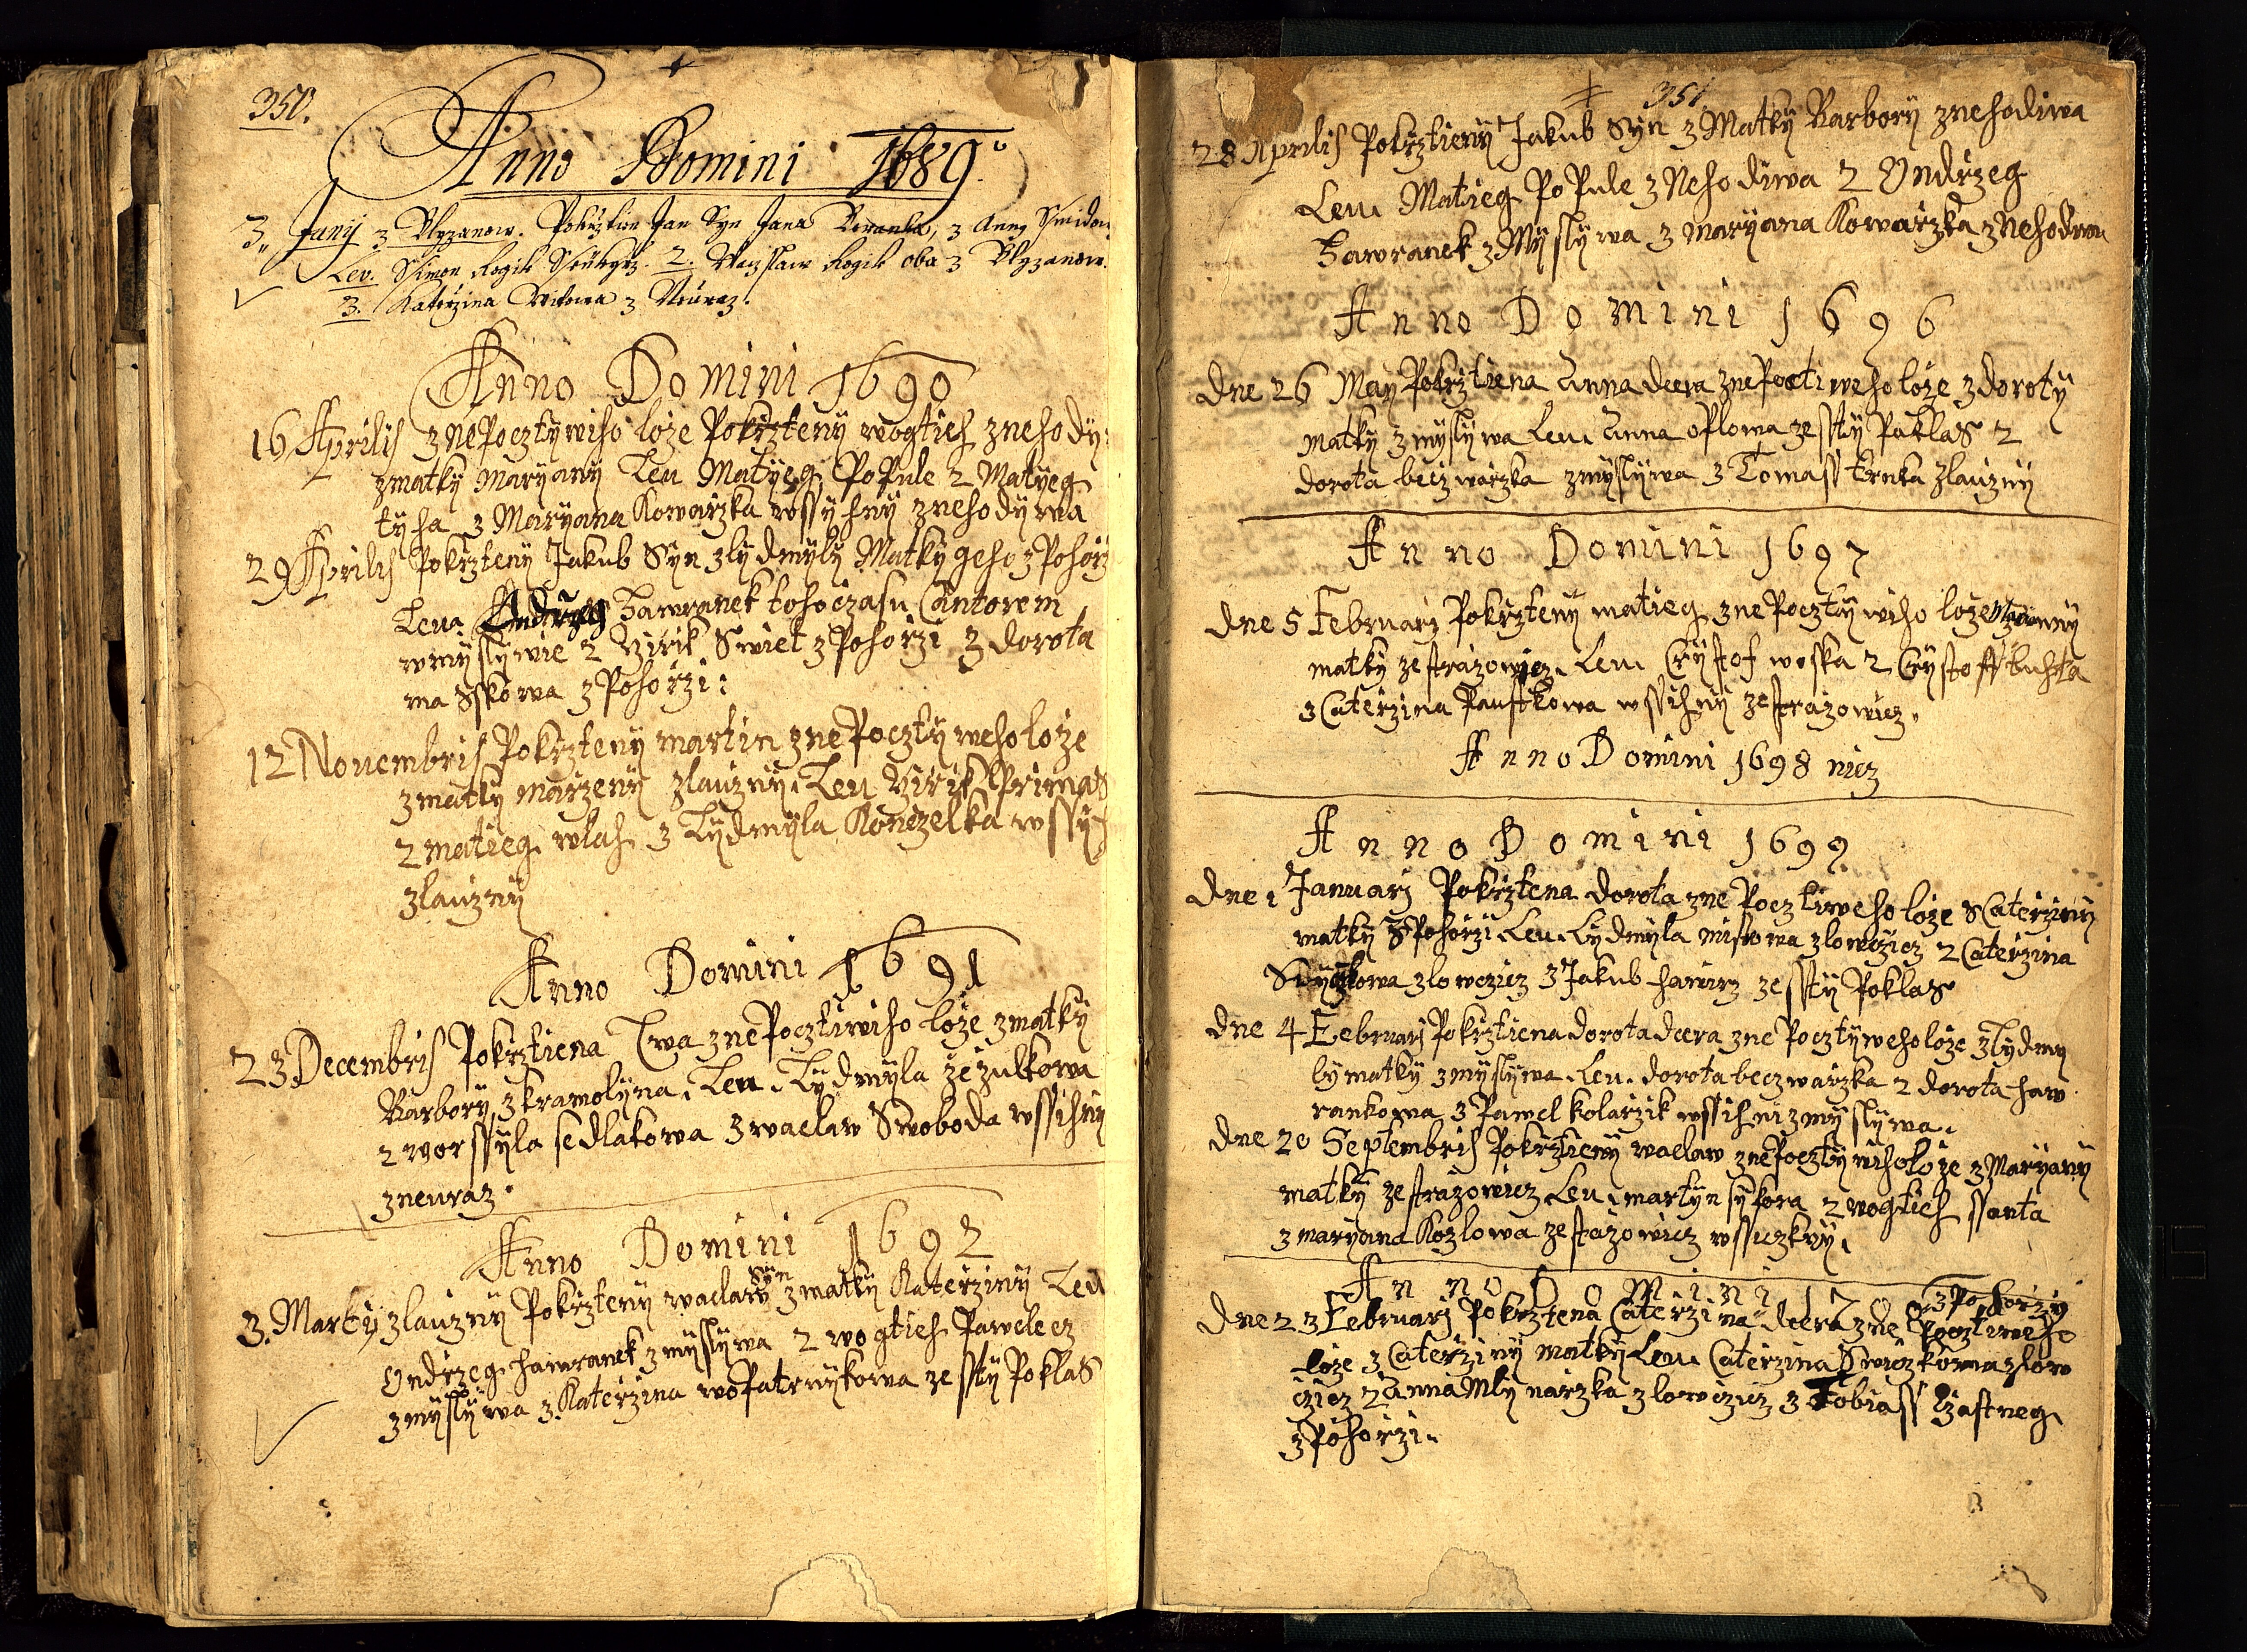 350.
Anno Domini 1689.
3. Junij z Blyzanow. Pokrztien Jan Syn Jana z Anny
Lev. Simon Rogik 2. Waczslaw Rogik oba z Blyzanow.
3. Katerzina z Neuraz.
Anno Domini 1690
16 Aprilis z nepocztywiho loze Pokrzteny wogtieh z nehody:
z matky Maryany Leu Matyeg PoPule 2 Matyeg
tyha 3 Maryana Kowarzka wssyhny z nehodywa
29 Aprilis Pokrzteny Jakub Syn z lydmyly Matky geho z Pohorz
Leu. Ondrzeg Hawranek toho czasu Cantorem
w myslywie 2 Swiet z Pohorzi 3 dorota
ma Sskowa z Pohorzi:
12 Nouembris Pokrzteny martin z nePocztyweho loze
z matky marzeny z lauzny. Leu Primas
2 matieg wlah 3 Lydmyla Konezelka wssy
z lauzny
Anno Domini 1691
23 Decembris Pokrztiena Ewa z nePocztiwiho loze z matky
Barbory z kramolyna. Leu. Lydmyla zezulkowa
2 worssyla sedlakowa 3 waclaw Swoboda wssihny
z neuraz.
Anno Domini 1692
syn
3. Marty z lauzny Pokrzteny waclaw z matky Katerziny Leu
Ondrzeg hawranek z myslywa 2 wogtieh Paweleez
z myslywa 3. Katerzina woPatrnykowa ze ssty Poklas
351
28 Aprilis Pokrztieny Jakub Syn z Matky Barbory z nehodiwa
Leu. Matieg PoPule z Nehodiwa 2 Ondrzeg
Hawranek z Myslywa 3 maryana Kowarzka z Nehodiwa
Anno Domini 1696
dne 26 May Pokrztiena Anna dcera z nePoctiweho loze z doroty
matky z myslywa Leu. Anna oflowa ze ssty Paklas 2
dorota beczwarzka z myslywa 3 Tomass trnka z lauzny
Anno Domini 1697
dne 5 Februarj Pokrzteny matieg z nePocztywiho loze z anny
matky ze strazowicz. Leu. Crystof woska 2 Crystoff tuhta
3 Caterzina Paustkowa wssihny ze strazowicz.
Anno Domini 1698 nicz
Anno Domini 1699
dne 1 Januarj Pokrztena dorota z ne Pocztiweho loze z Caterziny
matky z Pohorzi Leu. Lydmyla z lowczicz 2 Caterzina
z lowczicz 3 Jakub hawirz ze ssty Poklas
dne 4 Februarj Pokrztiena dorota dcera z ne Pocztyweho loze z Lydmy
ly matky z myslywa. Leu. dorota beczwarzka 2 dorota haw
rankowa 3 Pawel kolarzik wssihni z myslywa.
dne 20 Septembris Pokrztieny waclaw z nePocztywiho loze z Maryany
matky ze strazowicz Leu. martyn sykora 2 wogtieh ssanta
3 maryana Kozlowa ze stazowicz wssiczkny.
Anno Domini 1700
z Pohorzy
dne 23 Februarj Pokrztena Caterzina dcera z ne Pocztiweho
loze z Caterziny matky Leu. Caterzina Swiczkowa z low
czicz 2 Anna Mlynarzka z lowczicz 3 Tobiass
z Pohorzi.